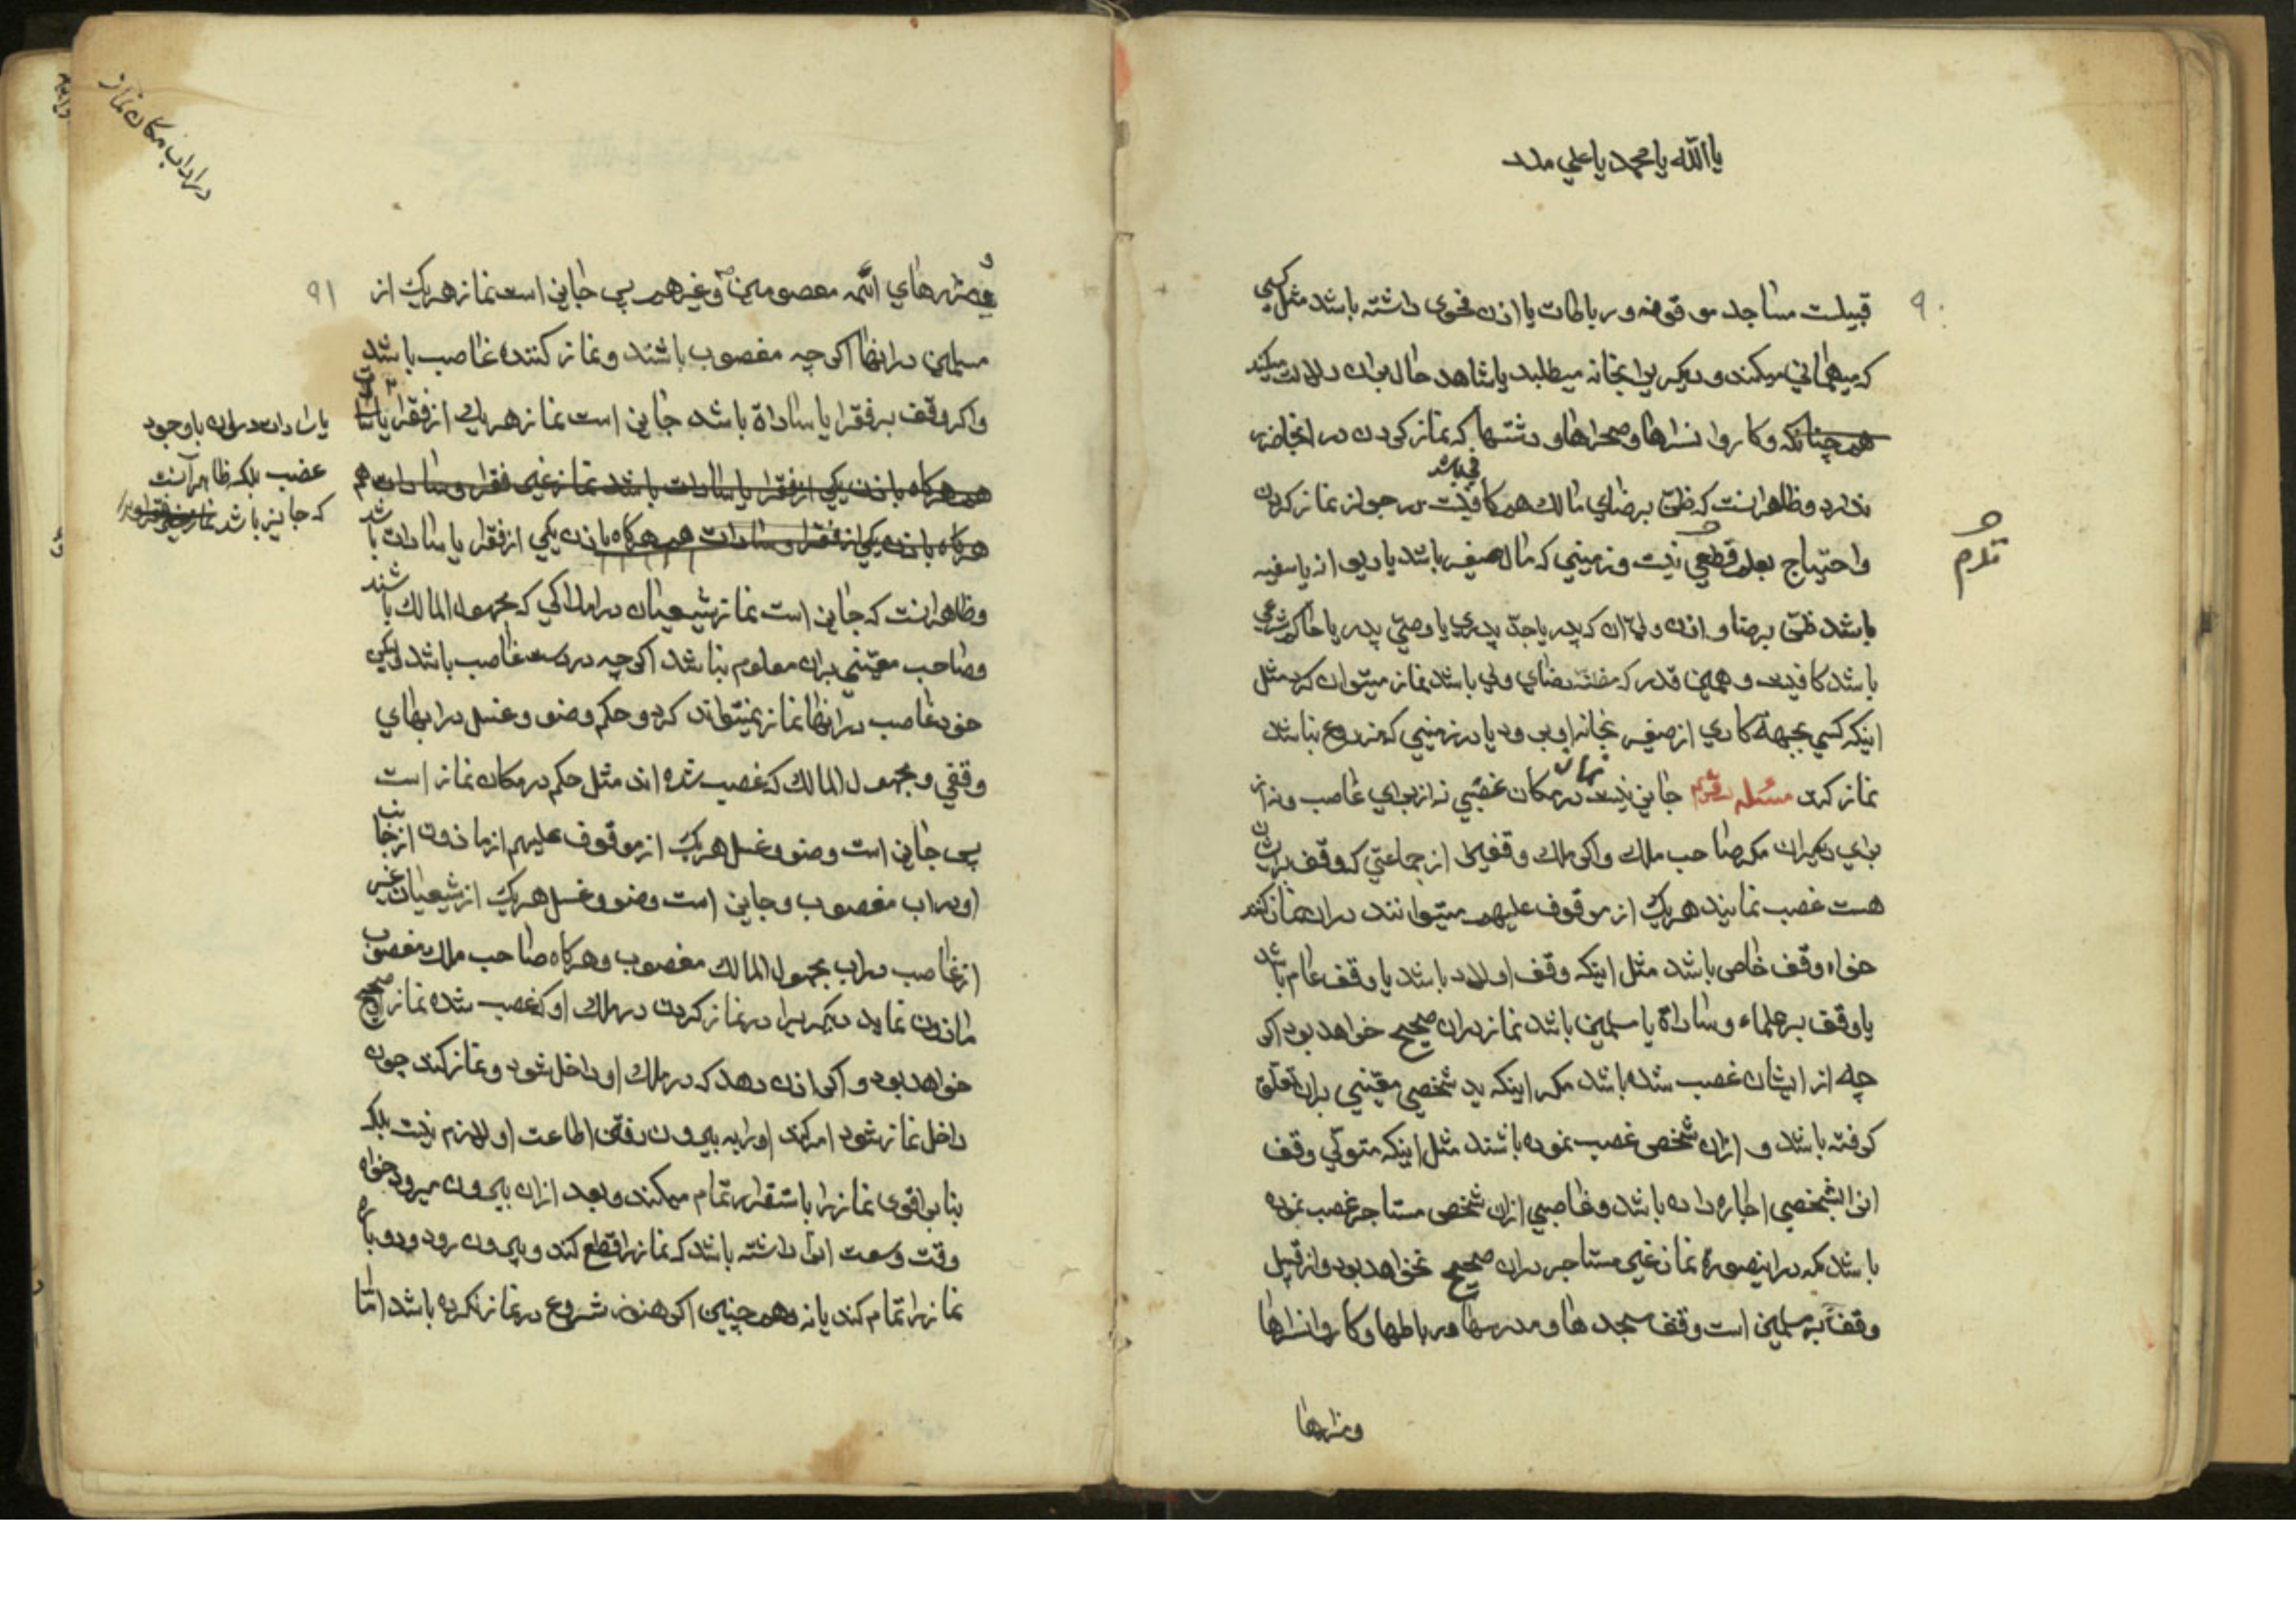 یا الله یا محمد یا علی مدد
۹۰
قبیلست مساجد موقوفه و رباطات یا اذن فحوی داشته باشد مثل کسی
که میهمانی میکند و دیگریرا بخانه میطلبد یا شاهد حال بران دلالت میکند
همچنانکه و کاروانسراها و صحراها و دشتها که نماز کردن در انجا ضرر
ندارد و ظاهر انست که ظنّ برضای مالک هم کافیست در جواز نماز کردن
واحتیاج بعلم قطعی نیست و زمینی که مال صغیر باشد یا دیوانه یا سفیه
باشد ظنّ برضا و اذن ولیّ ان که پدر یا جدّ پدری یا وصیّ پدر یا حاکم شرعی
باشد کافیست و همین قدر که مظنّه رضای ولی باشد نماز میتوان کرد مثل
اینکه کسی بجهة کاری از صغیر بخانه او برود یا در زمینی که مزروع نباشد
نماز کرد مسئله جایز نیست نماز در مکان غصبی نه از برای غاصب و نه از
برای دیگران مگر صاحب ملک و اگر ملک وقفی را از جماعتی که وقف بر ایشان
هست غصب نمایند هر یک از موقوف علیهم میتوانند در ان نماز کنند
خواه وقف خاص باشد مثل اینکه وقف اولاد باشد یا وقف عام باشد
یا وقف بر علماء و ساداة یا مسلمین باشد نماز در ان صحیح خواهد بود اگر
چه از ایشان غصب شده باشد مگر اینکه ید شخصی معیّنی بران تعلق
گرفته باشد و از ان شخص غصب نموده باشند مثل اینکه متولّی وقف
انرا بشخصی اجاره داده باشد و غاصبی از ان شخص مستاجر غصب نموده
باشد که در اینصورة نماز غیر مستاجر در ان صحیح نخواهد بود و از قبیل
وقف بر مسلمین است وقف مسجدها و مدرسها و رباطها و کاروانسراها
ومزارها
در اداب مکان نماز
۹۱
و مزارهای ائمّه معصومین و غیرهم پس جایز است نماز هر یک از
مسلمین در انها اگر چه مغصوب باشند و نماز کننده غاصب باشد
واگر وقف بر فقرا یا ساداة باشد جایز است نماز هر یک از فقرا یا
هم هرگاه باذن یکی از فقرا یا سادات باشد نماز غیر فقرا و سادات هم
هرگاه باذن یکی از فقرا و سادات هم هرگاه باذن یکی از فقرا یا سادات باشد
وظاهر انست که جایز است نماز شیعیان در املاکی که مجهول المالک باشند
وصاحب معیّنی بران معلوم نباشد اگر چه در دست غاصب باشد لیکن
خود غاصب در انها نماز نمیتواند کرد و حکم وضو و غسل در ابهای
وقفی و مجهول المالک که غصب شده اند مثل حکم در مکان نماز است
پس جایز است وضو و غسل هر یک از موقوف علیهم از ماذون از جانب
او در اب مغصوب و جایز است وضو و غسل هر یک از شیعیان غیر
از غاصب در اب مجهول المالک مغصوب و هرگاه صاحب ملک مغصوب
ماذون نماید دیگریرا در نماز کردن در ملک او که غصب شده نماز صحیح
خواهد بود و اگر اذن دهد که در ملک او داخل شود و نماز کند چون
داخل نماز شود امر کند او را به بیرون رفتن اطاعت او لازم نیست بلکه
بنا بر اقوی نماز را باستقرار تمام میکند و بعد از ان بیرون میرود خواه
وقت وسعت انرا داشته باشد که نماز را قطع کند و بیرون رود و دوباره
نماز را تمام کند یا نه و همچنین اگر هنوز شروع در نماز نکرده باشد امّا
با وجود
غصب بلکه ظاهر آنست
که جایز باشد